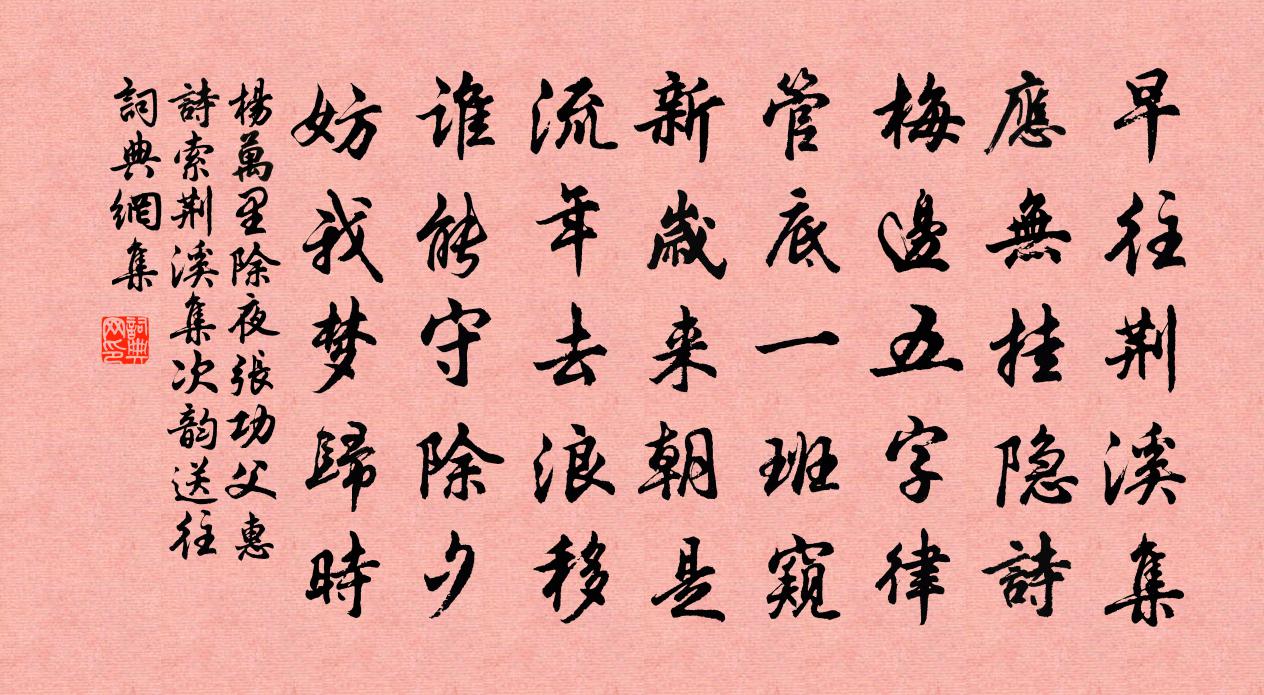 早往荆溪集
應無挂隐詩
梅邊五字律
管底一班窺
新歲来朝是
流年去浪移
谁能守除夕
妨我梦歸時
楊萬里除夜張功父惠
詩索荆溪集次韵送往
詞典網集
詞典网印